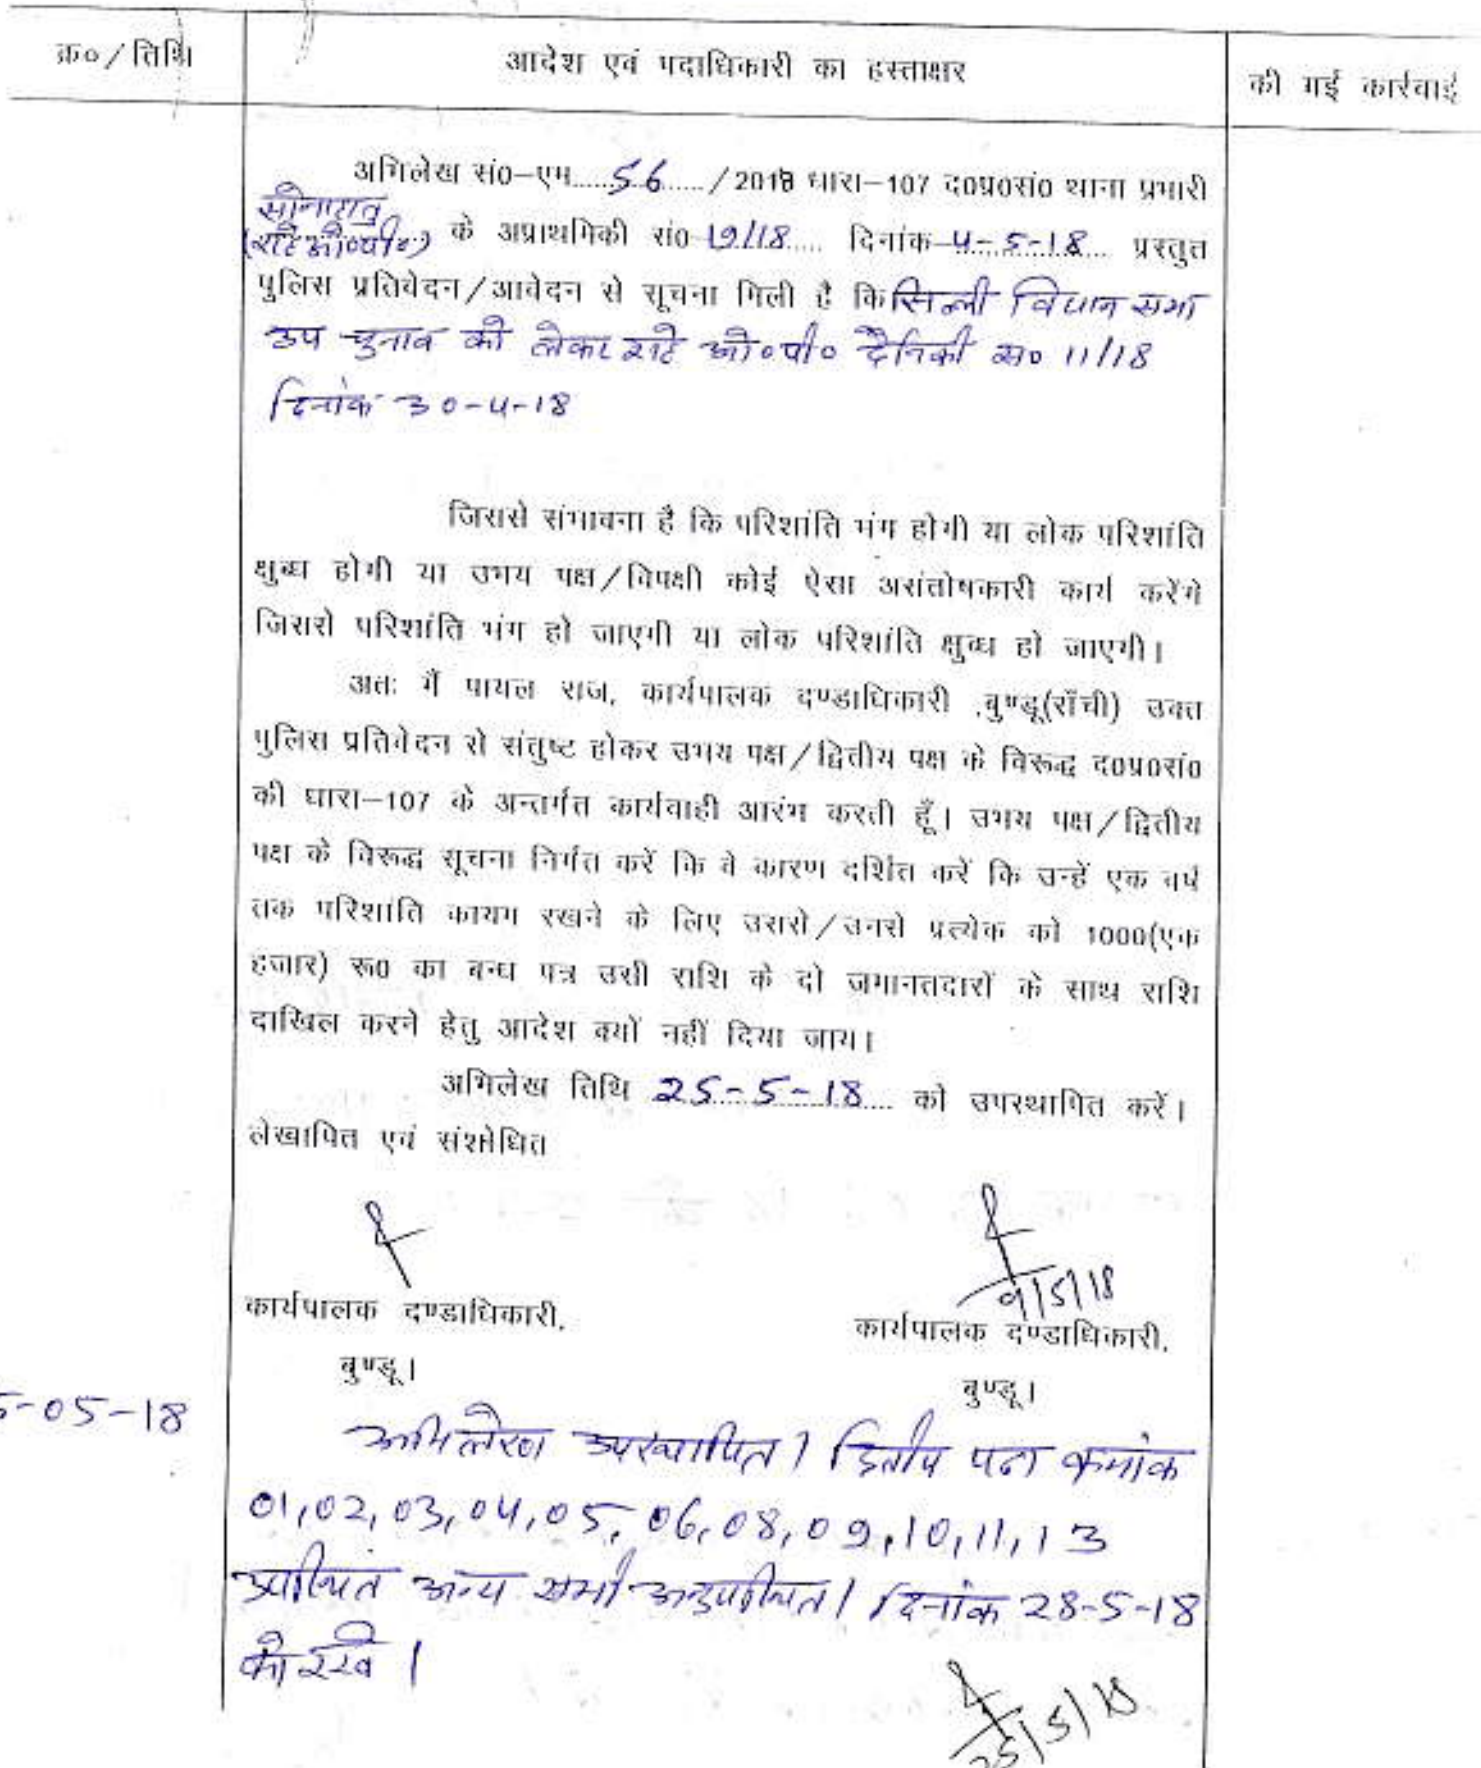 क्र०/तिथि
आदेश एवं पदाधिकारी का हस्ताक्षर
की गई कार्रवाई
अभिलेख सं0-एम.....56...../2018 धारा-107 द0प्र0सं0 थाना प्रभारी
सोनाहातु
(राहे ओ०पी०) के अप्राथमिकी सं0-19/18..... दिनांक-4-5-18... प्रस्तुत
पुलिस प्रतिवेदन/आवेदन से सूचना मिली है कि सिल्ली विधान सभा
उप चुनाव को लेकर राहे ओ०पी० दैनिकी स० 11/18
दिनांक 30-4-18
जिससे संभावना है कि परिशांति भंग होगी या लोक परिशांति
क्षुब्ध होगी या उभय पक्ष/विपक्षी कोई ऐसा असंतोषकारी कार्य करेंगे
जिससे परिशांति भंग हो जाएगी या लोक परिशांति क्षुब्ध हो जाएगी।
अतः मैं पायल राज, कार्यपालक दण्डाधिकारी ,बुण्डू(राँची) उक्त
पुलिस प्रतिवेदन से संतुष्ट होकर उभय पक्ष/द्वितीय पक्ष के विरूद्ध द0प्र0सं0
की धारा-107 के अन्तर्गत कार्यवाही आरंभ करती हूँ। उभय पक्ष/द्वितीय
पक्ष के विरूद्ध सूचना निर्गत करें कि वे कारण दर्शित करें कि उन्हें एक वर्ष
तक परिशांति कायम रखने के लिए उससे/उनसे प्रत्येक को 1000(एक
हजार) रू0 का बन्ध पत्र उसी राशि के दो जमानतदारों के साथ राशि
दाखिल करने हेतु आदेश क्यों नहीं दिया जाय।
अभिलेख तिथि 25-5-18 को उपस्थापित करें।
लेखापित एवं संशोधित
9/5/18
कार्यपालक दण्डाधिकारी,
कार्यपालक दण्डाधिकारी,
बुण्डू।
बुण्डू।
5-05-18
अभिलेख उपस्थापित। द्वितीय पक्ष क्रमांक
01,02,03,04,05,06,08,09,10,11,13
उपस्थित अन्य सभी अनुपस्थित। दिनांक 28-5-18
को रखें।
25/5/18